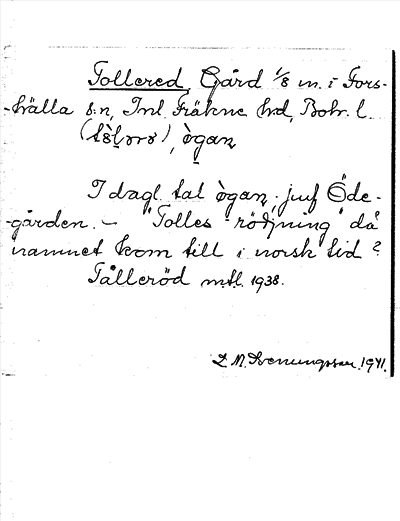 Tollered, Gård 1/8 m. i Fors-
-hälla s:n, Inl. Fräkne hd, Boh. l.
ògan
I dagl. tal ògan, jmf Öde-
-gården. – "Tolles rödjning" då
namnet kom till i norsk tid?
Tålleröd mtl. 1938.
1941.